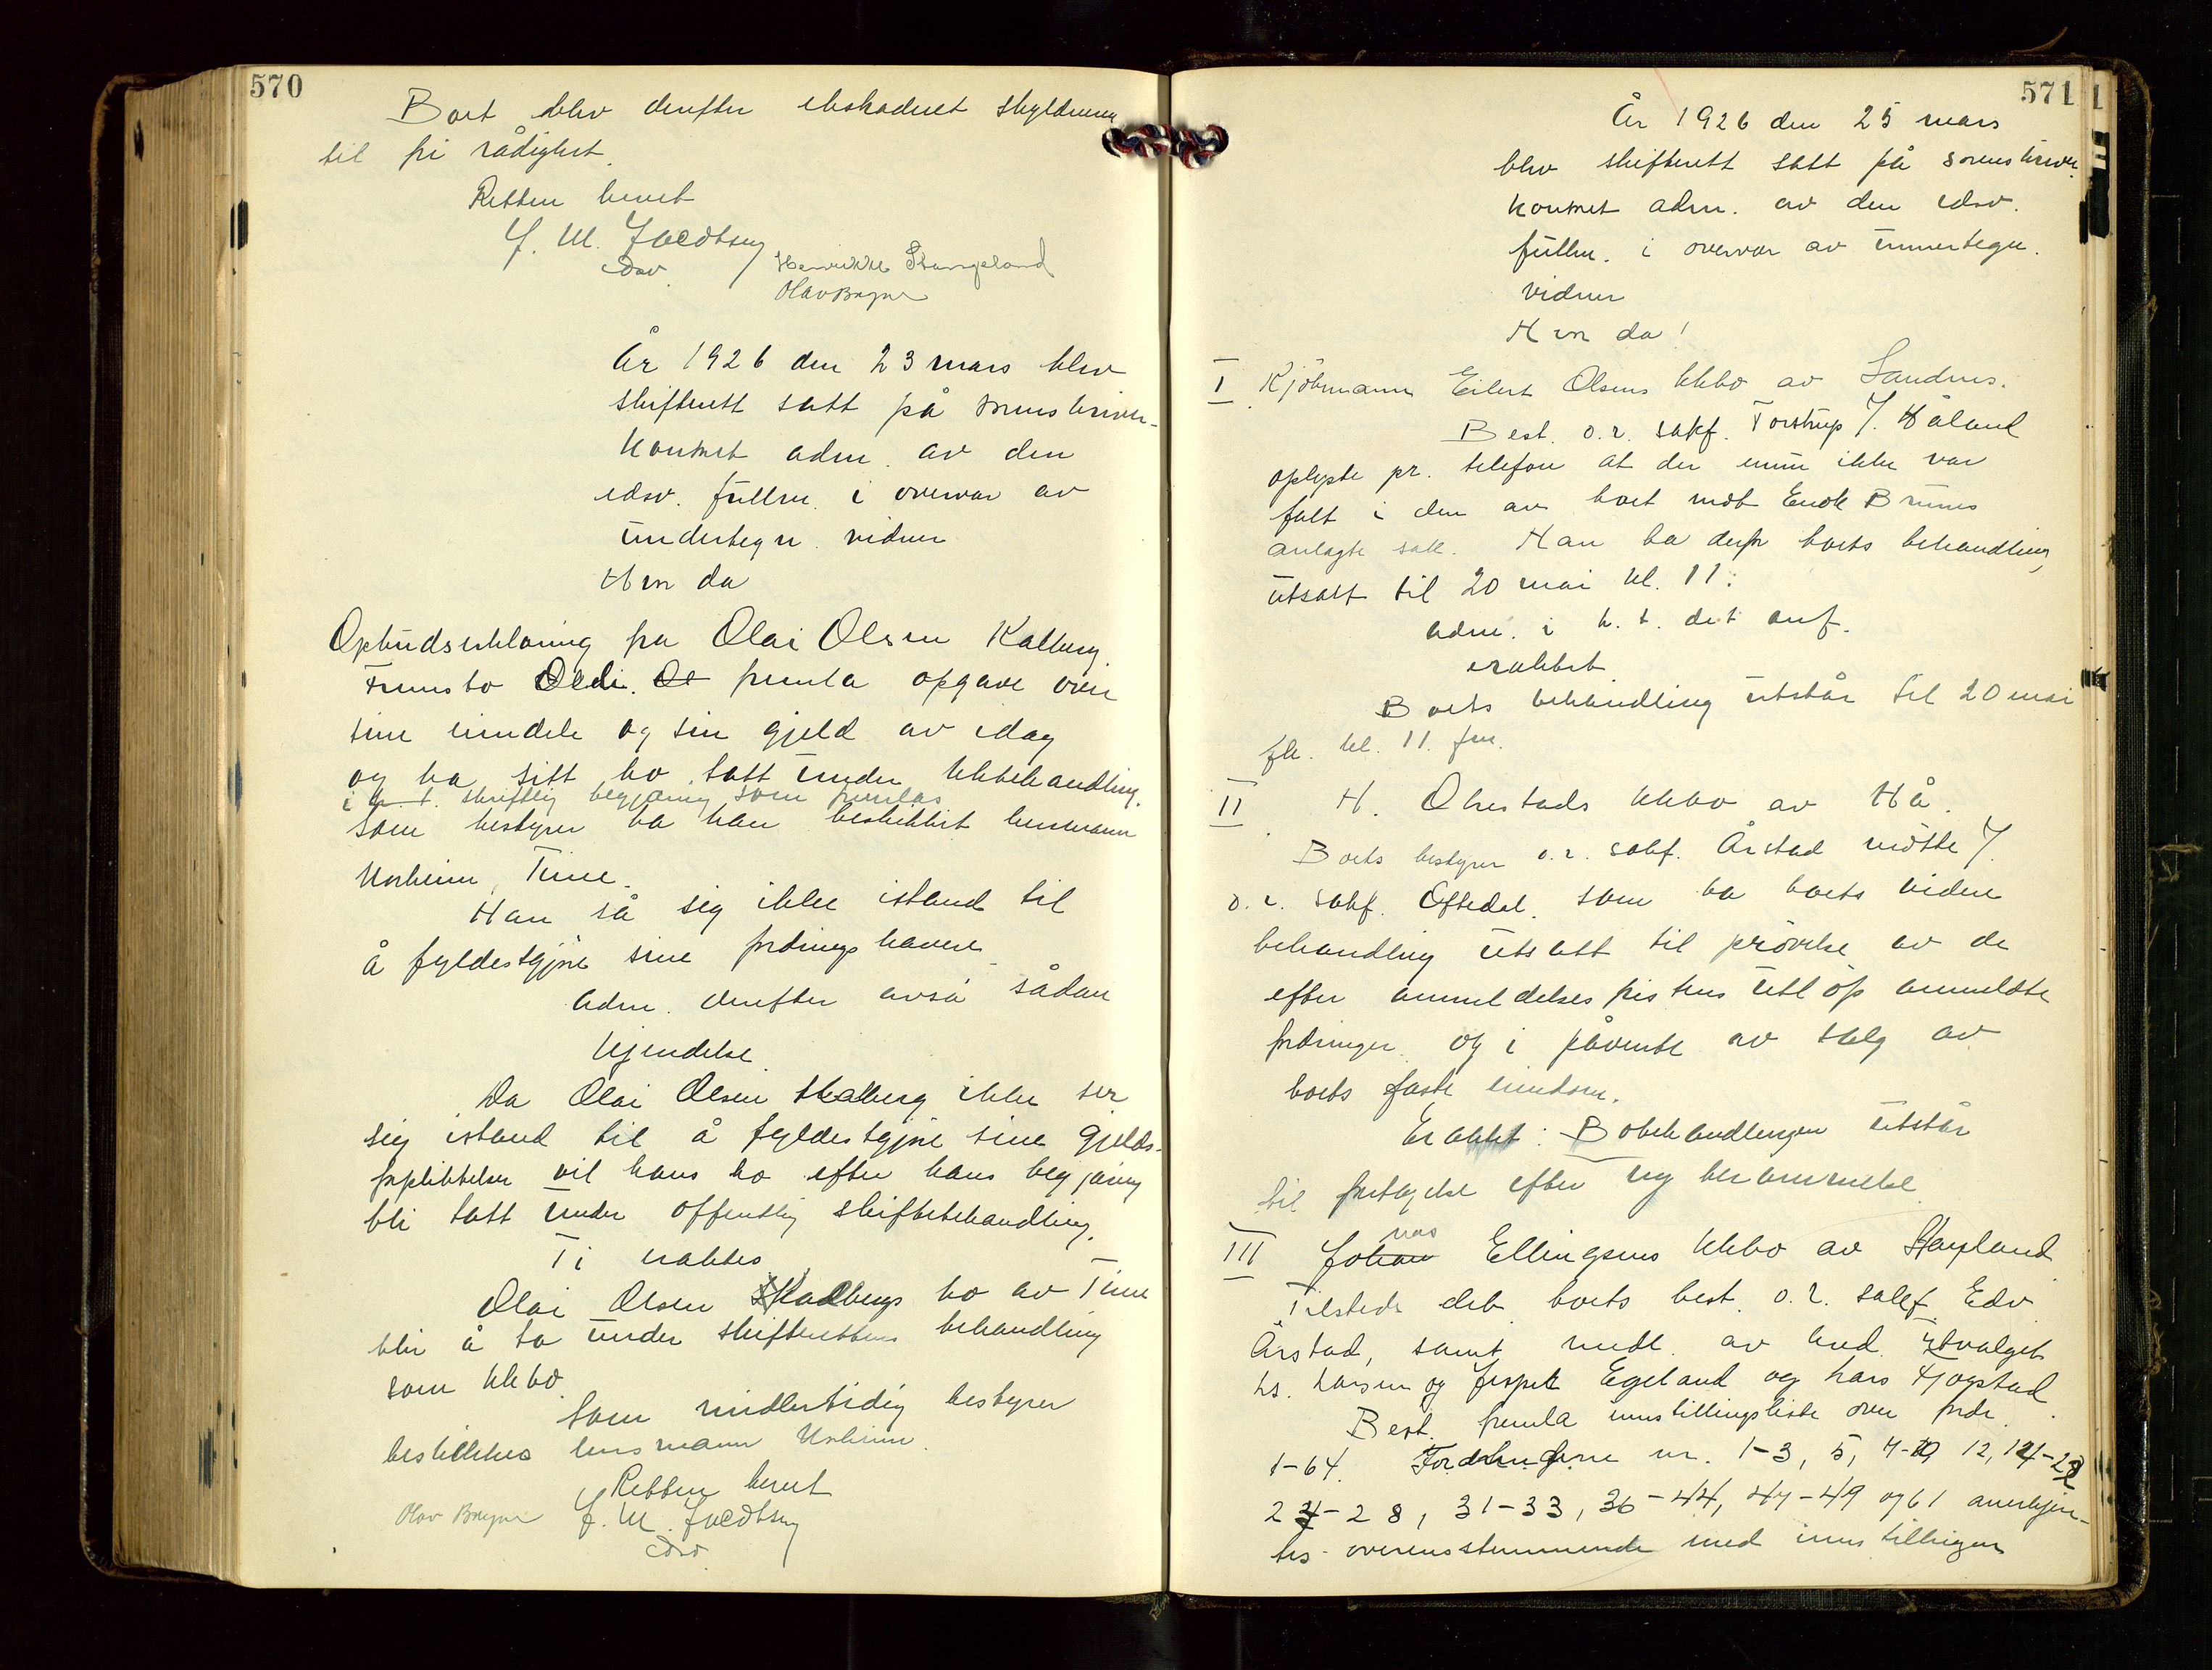 570
Boet blev derefter ekstradert skyldneren
til fri rådighet.
Retten hevet
J. M. Jacobsen
edsv.
Henrikke Stangeland
Olav Bryne
År 1926 den 23 mars blev
skifterett satt på sorenskriver-
kontoret adm. av den
edsv. fullm. i overvær av
undertegn. vidner
Hvor da
Opbudserklæring fra Olai Olsen Kalberg.
Fremsto Olai. Ol fremla opgave over
sine eiendele og sin gjeld av idag
og ba sitt bo tatt under kkbehandling.
i h. t. skriftlig begjæring som fremlas
Som bestyrer ba han beskikket lensmann
Norheim, Time.
Han så sig ikke istand til
å fyldestgjøre sine fordringshavere.
Adm. derefter avsa sådan
kjendelse.
Da Olai Olsen Kalberg ikke ser
sig istand til å fyldestgjøre sine gjelds-
forpliktelser vil hans bo efter hans begjæring
bli tatt under offentlig skiftebehandling.
Ti eraktes
Olai Olsen Kalbergs bo av Time
blir å ta under skifterettens behandling
som kkbo.
Som midlertidig bestyrer
beskikkes lensmann Norheim.
Retten hevet
Olav Bryne J. M. Jacobsen
edsv.
571
År 1926 den 25 mars
blev skifterett satt på sorenskriver
kontoret adm. av den edsv.
fullm. i overvær av undertegn.
vidner
Hvor da!
I Kjøbmann Eilert Olsens kkbo av Sandnes.
Best. o.r. sakf. Torstrup v/ Håland
oplyste pr. telefon at dom ennu ikke var
falt i den av boet mot Enok Brunes
anlagte sak. Han ba derfor boets behandling
utsatt til 20 mai kl. 11.
Adm. i h. t. det anf.
eraktet
Boets behandling utstår til 20 mai
fk. kl. 11 fm.
II H. Obrestads kkbo av Hå.
Boets bestyrer o.r. sakf. Årstad møtte v/
o.r. sakf. Oftedal. som ba boets videre
behandling utsatt til prøvelse av de
efter anmeldelsesfristens utløp anmeldte
fordringer og i påvente av salg av
boets faste eiendom.
Eraktet: Bobehandlingen utstår
til foretagelse efter ny berammelse.
III Johan nas Ellingsens kkbo av Høyland
Tilstede deb. boets best. o.r. sakf. Edv.
Årstad, samt medl. av kred. utvalget
hs. Larsen og Jesper Egeland og Lars Tjøgstad
Best. fremla innstillingsliste over fordr.
1-64. Fordringene nr. 1-3, 5, 7-10 12, 14-22
24-28, 31-33, 36-44, 47-49 og 61 anerkjen-
tes overensstemmende med innstillingen